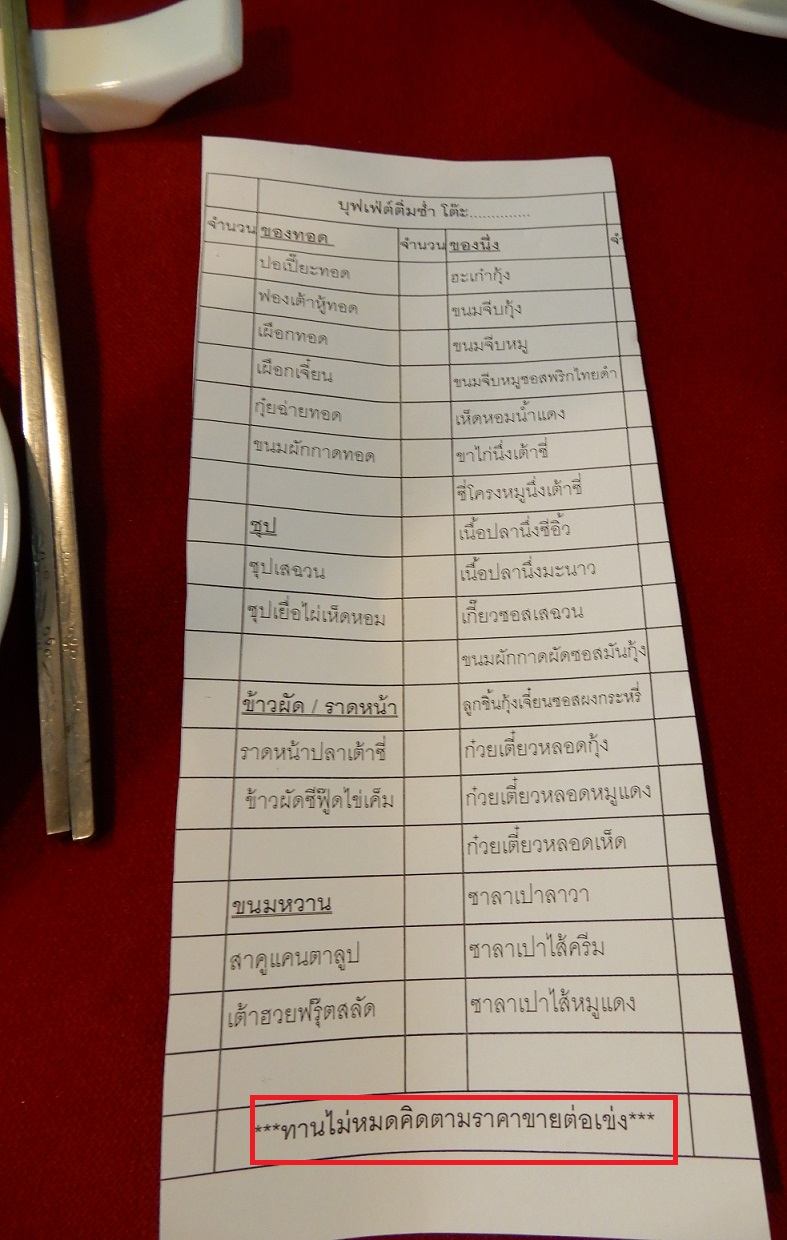 บุฟเฟ่ต์ติ่มซำ โต๊ะ..............
จำนวน ของทอด จำนวน ของนึ่ง จำ
ปอเปี๊ยะทอด ฮะเก๋ากุ้ง
ฟองเต้าหู้ทอด ขนมจีบกุ้ง
เผือกทอด ขนมจีบหมู
เผือกเจี๋ยน ขนมจีบหมูซอสพริกไทยดำ
กุ๋ยฉ่ายทอด เห็ดหอมน้ำแดง
ขนมผักกาดทอด ขาไก่นึ่งเต้าซี่
ซี่โครงหมูนึ่งเต้าซี่
ซุป เนื้อปลานึ่งซีอิ้ว
ซุปเสฉวน เนื้อปลานึ่งมะนาว
ซุปเยื่อไผ่เห็ดหอม เกี๊ยวซอสเสฉวน
ขนมผักกาดผัดซอสมันกุ้ง
ข้าวผัด / ราดหน้า ลูกชิ้นกุ้งเจี๋ยนซอสผงกระหรี่
ราดหน้าปลาเต้าซี่ ก๋วยเตี๋ยวหลอดกุ้ง
ข้าวผัดซีฟู๊ดไข่เค็ม ก๋วยเตี๋ยวหลอดหมูแดง
ก๋วยเตี๋ยวหลอดเห็ด
ขนมหวาน ซาลาเปาลาวา
สาคูแคนตาลูป ซาลาเปาไส้ครีม
เต้าฮวยฟรุ๊ตสลัด ซาลาเปาไส้หมูแดง
***ทานไม่หมดคิดตามราคาขายต่อเข่ง***